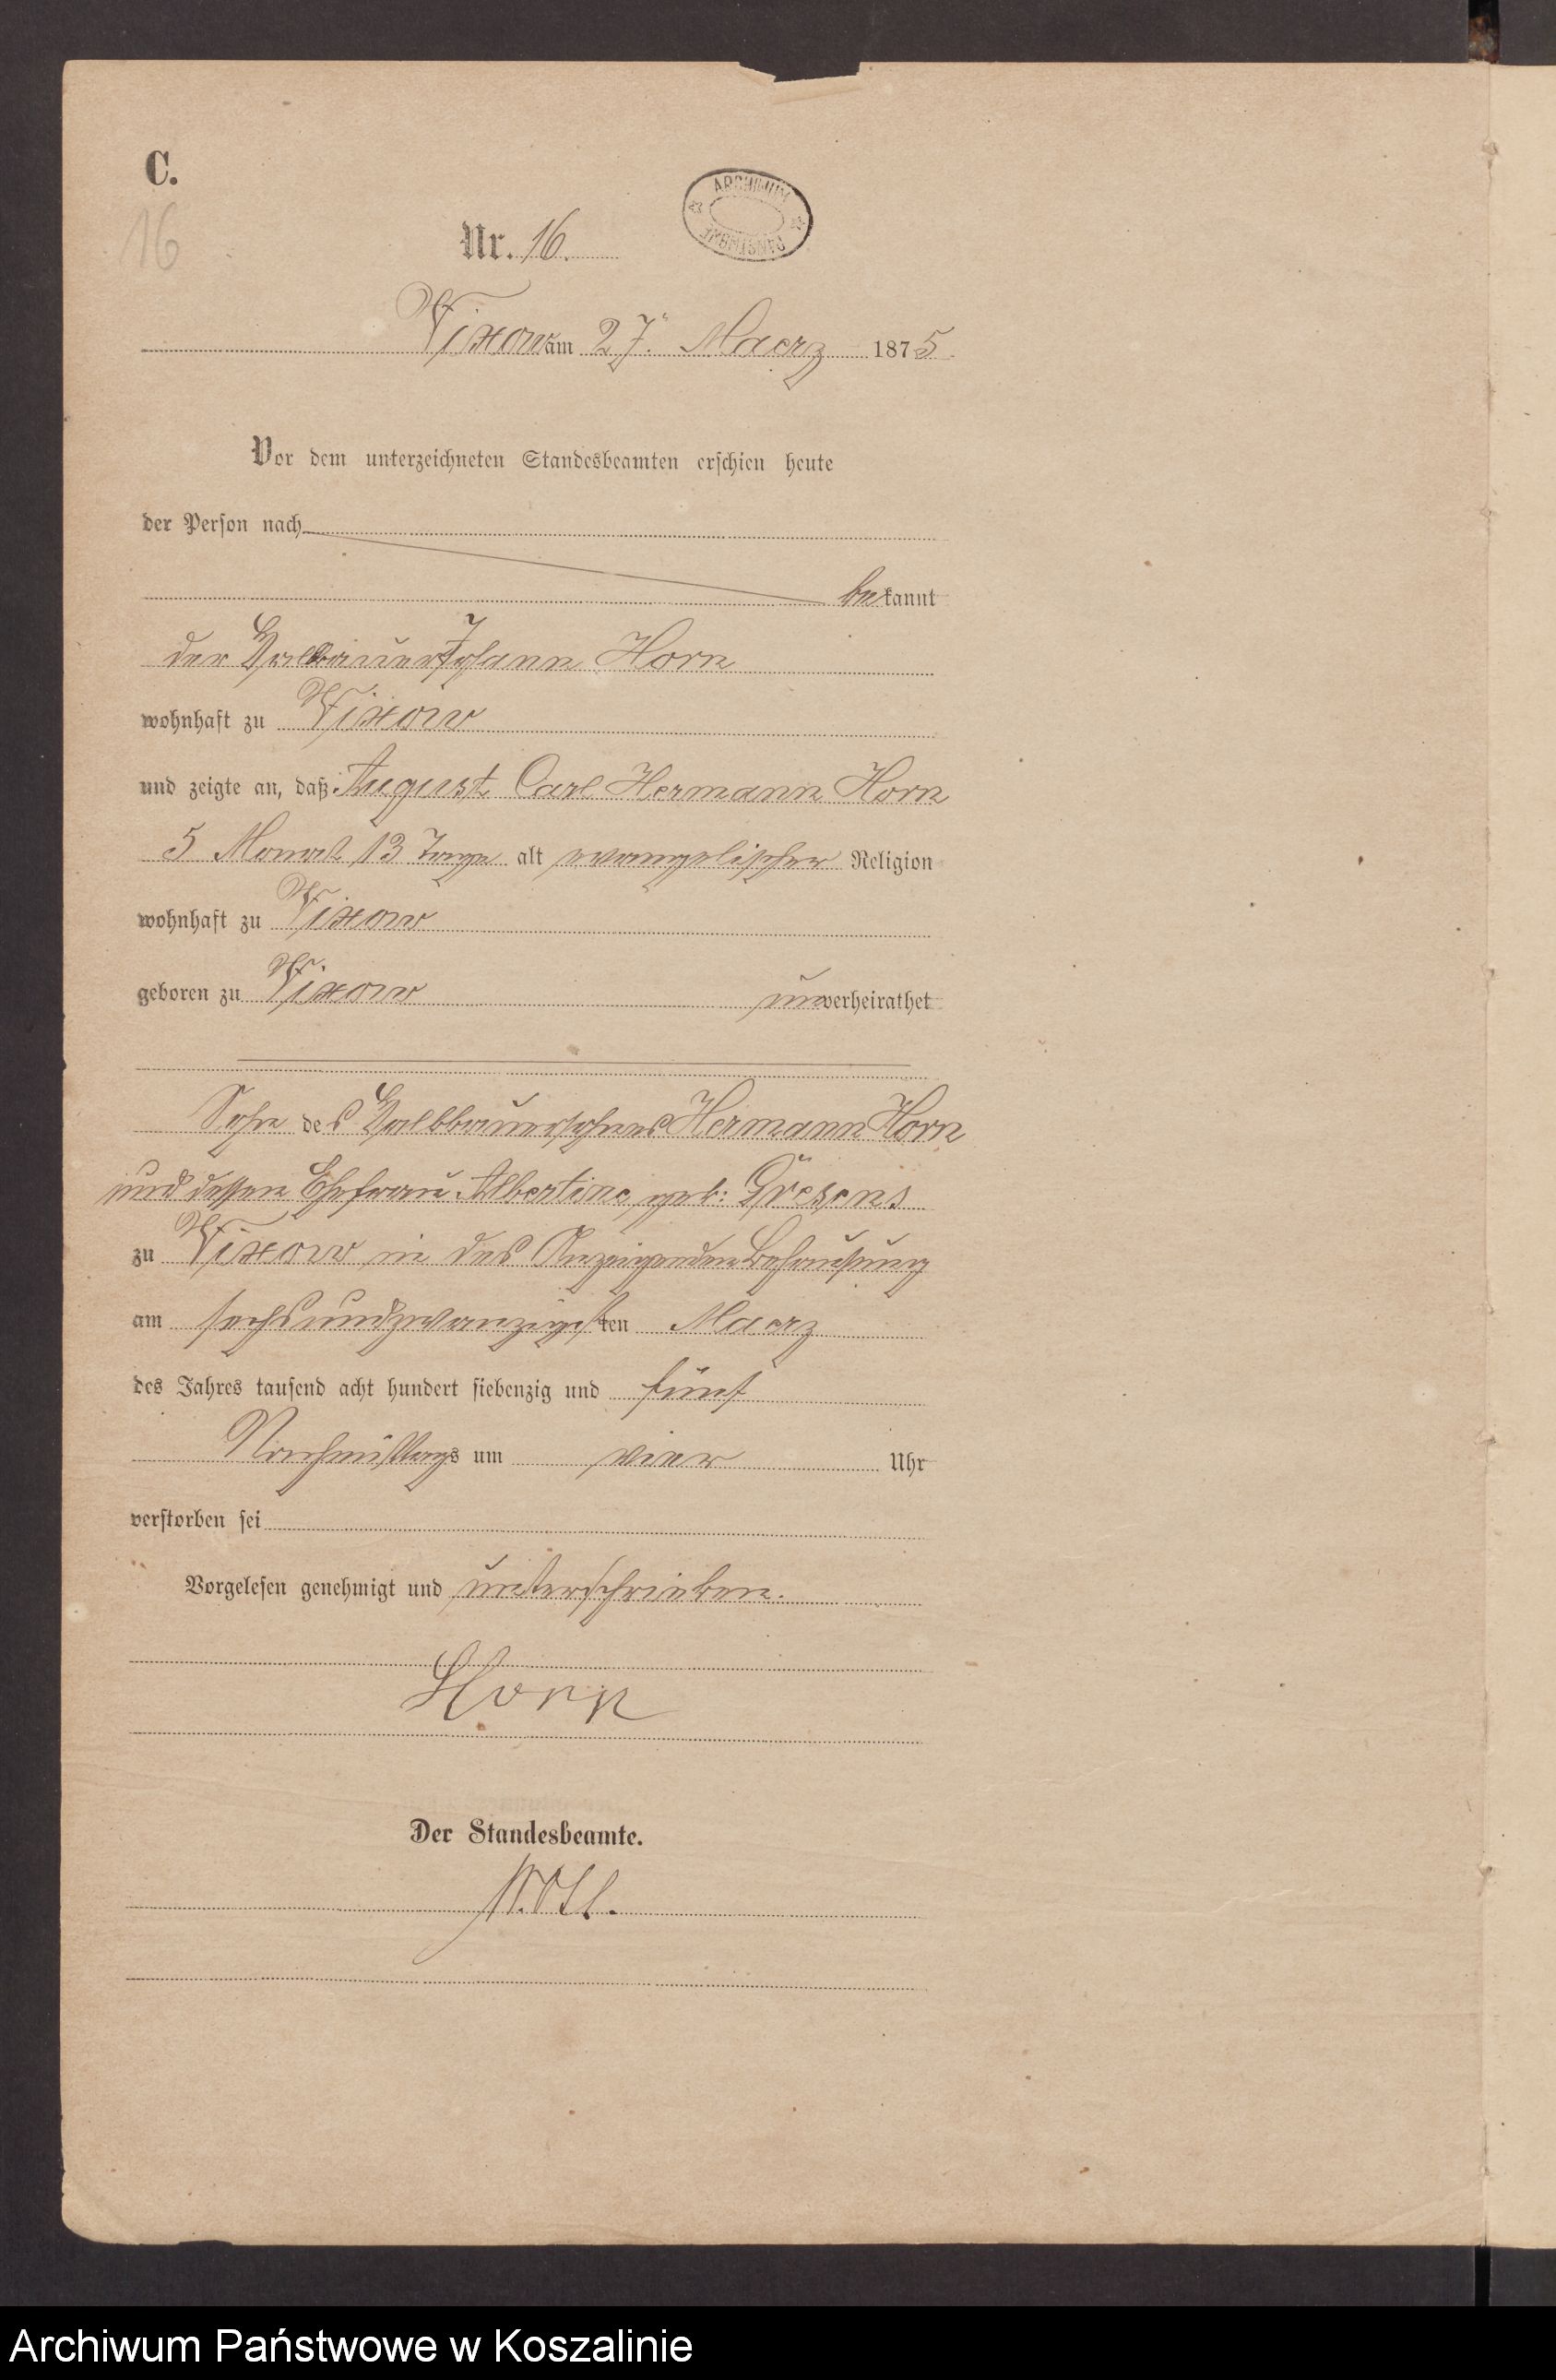 C.
16
Nr. 16.
ARCHIWUM PAŃSTWOWE
Vixow am 27. Maerz 1875.
Vor dem unterzeichneten Standesbeamten erschien heute
der Person nach
bekannt
der Halbbauer Johann Horn
wohnhaft zu Vixow
und zeigte an, daß August Carl Hermann Horn
5 Monat 13 Tage alt evangelischer Religion
wohnhaft zu Vixow
geboren zu Vixow unverheirathet
Sohn des Halbbauersohnes Hermann Horn
und dessen Ehefrau Albertine geb: Gresens
zu Vixow in des Anzeigenden Behausung
am sechsundzwanzigsten Maerz
des Jahres tausend acht hundert siebenzig und fünf
Nachmittags um vier Uhr
verstorben sei
Vorgelesen genehmigt und unterschrieben.
Horn
Der Standesbeamte.
Archiwum Państwowe w Koszalinie